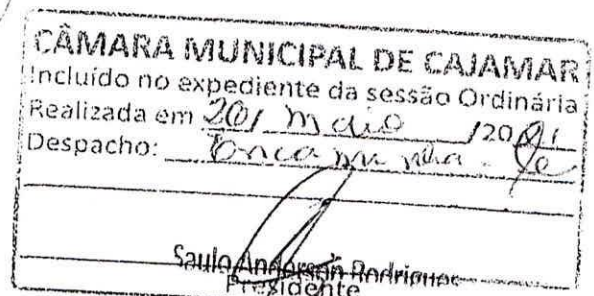 CÂMARA MUNICIPAL DE CAJAMAR
Incluído no expediente da sessão Ordinária
Realizada em 20/ maio /2021
Despacho: Encaminha-se
Saulo Anderson Rodrigues
Presidente